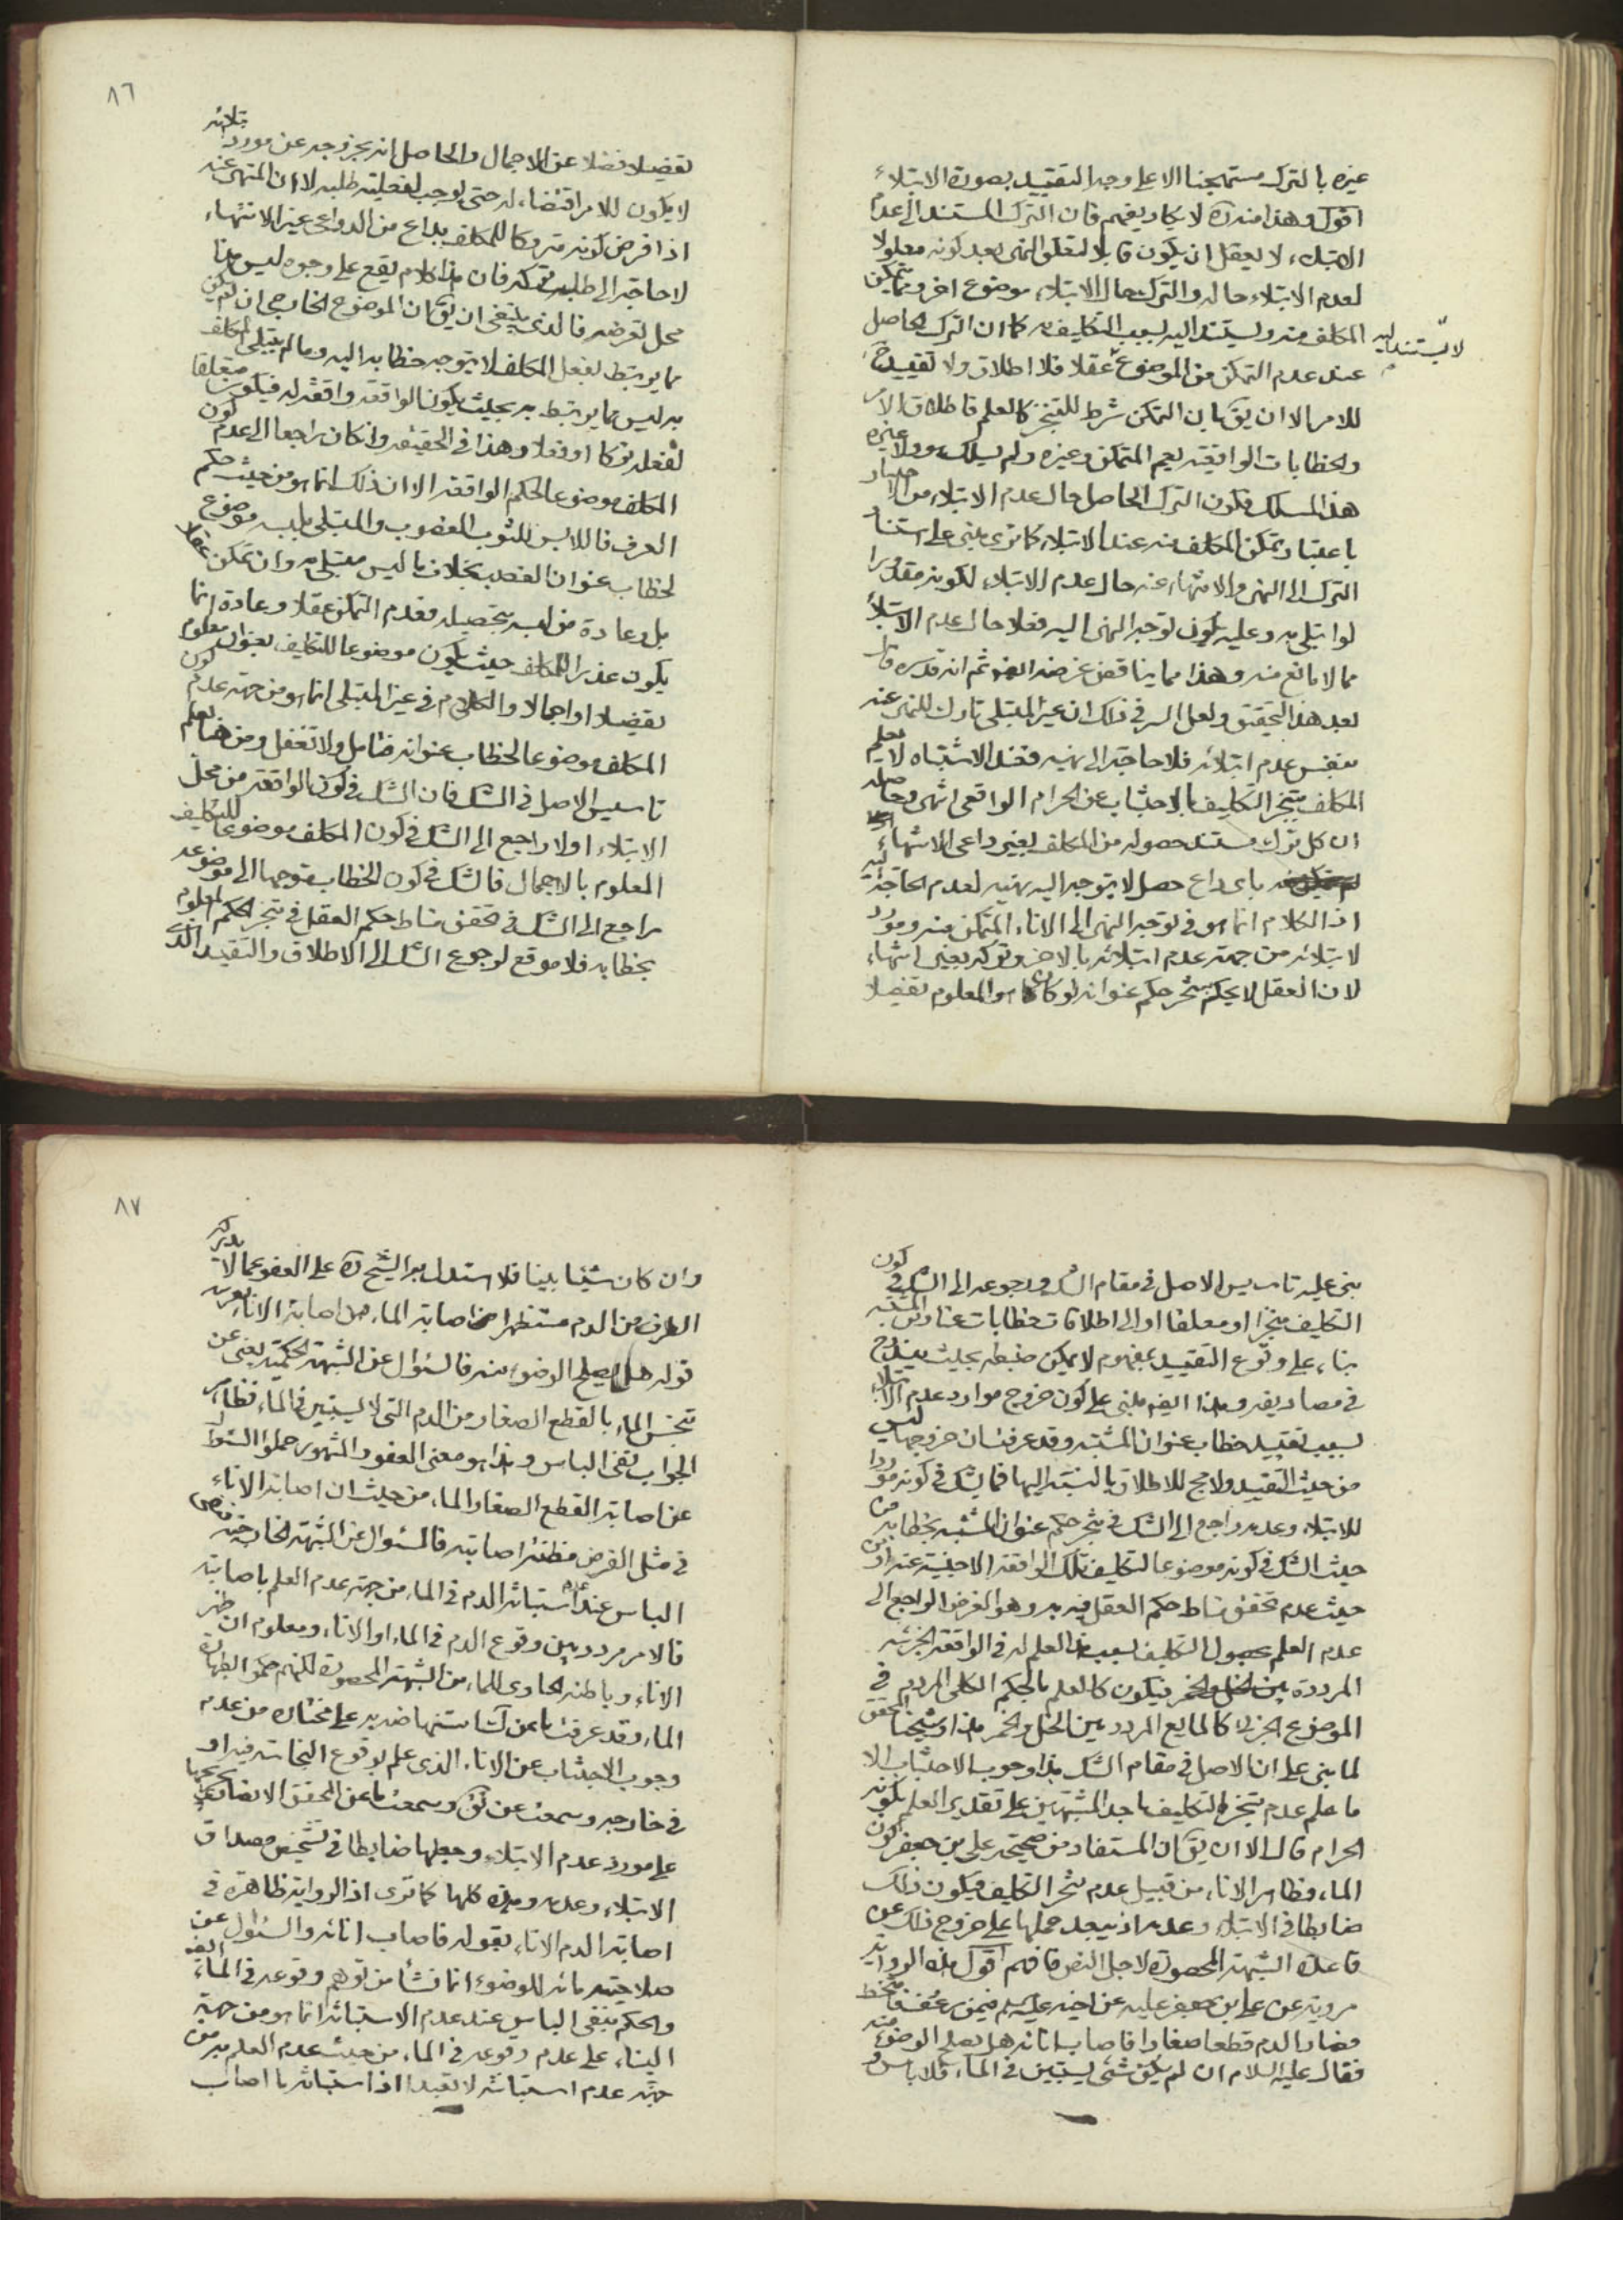 غيره بالترك مستهجنا الا على وجه التقييد بصورة الابتلاء
اقول وهذا منه ره لا يكاد يفهم فان الترك المستند الى عدم
الابتلاء لا يعقل ان يكون قابلا لتعلق النهى بعد كونه معلولا
لعدم الابتلاء حاله والترك حال الابتلاء موضوع اخر يتمكن
المكلف منه ويستند اليه بسبب التكليف به كما ان الترك الحاصل
لا يستند اليه
عند عدم التمكن من الموضوع عقلا فلا اطلاق ولا تقييد ح
للامر الا ان يق بان التمكن شرط للتنجز كالعلم فاطلاق الامر
والخطابات الواقعية يعم المتمكن وغيره ولم يسلك هو ولا غيره
هذا المسلك فكون الترك الحاصل حال عدم الابتلاء من
باعتبار تمكن المكلف منه عند الابتلاء كما ترى مبنى على استناد
الترك الى النهى والانتهاء عنه حال عدم الابتلاء لكونه مقدرا
لو ابتلى به وعليه يكون توجه النهى اليه فعلا حال عدم الابتلاء
مما لا مانع منه وهذا مما يناقض غرضه ايضا ثم انه قدس ره قال
بعد هذا التحقيق ولعل السر فى ذلك ان غير المبتلى تارك للمنهى عنه
بنفس عدم ابتلائه فلا حاجة الى نهيه فعند الاشتباه لا يعلم
المكلف بتنجز التكليف بالاجتناب عن الحرام الواقعى انتهى وحاصله
ان كل ترك مستند حصوله من المكلف بغير داعى الانتهاء
باى داع حصل لا يتوجه اليه نهيه لعدم الحاجة اليه
اذ الكلام انما هو فى توجه النهى الى الاناء المتمكن منه ومورد
لابتلائه من جهة عدم ابتلائه بالاخر وتركه بغير انتهاء
لان العقل لا يحكم بتنجز حكم عنوانه لو كان هو المعلوم تفصيلا
٨٦
تفصيلا فضلا عن الاجمال والحاصل انه بخروجه عن مورد ابتلائه
لا يكون للامر اقتضاء له حتى يوجب لفعليته طلبه لا ان المنهى عنه
اذا فرض كونه متروكا للمكلف بداع من الدواعى غير الانتهاء
لا حاجة الى طلب تركه فان هذا كلام يقع على وجوه ليس هنا
محل لتعرضه فالذى ينبغى ان يق ان الموضوع الخارجى ان لم يكن
مما يرتبط بفعل المكلف لا يتوجه خطابه اليه وما لم يبتلى المكلف
به ليس مما يرتبط به بحيث يكون الواقعة واقعة له فيكون متعلقا
لفعله تركا او فعلا وهذا فى الحقيقه وان كان راجعا الى عدم كون
المكلف موضوعا لحكم الواقعة الا ان ذلك انما هو من حيث حكم
العرف فاللابس للثوب المغصوب والمبتلى بلبسه موضوع
لخطاب عنوان الغصب بخلاف ما ليس مبتلى به وان تمكن عقلا
بل وعادة من لبسه بتحصيله فعدم التمكن عقلا وعادة انما
يكون عذرا للمكلف حيث يكون موضوعا للتكليف بعنوان معلوم
تفصيلا او اجمالا والكلام فى غير المبتلى انما هو من جهة عدم كون
المكلف موضوعا لخطاب عنوانه فتامل ولا تغفل ومن هنا يعلم
تاسيس الاصل فى الشك فان الشك فى كون الواقعة من محل
الابتلاء اولا راجع الى الشك فى كون المكلف موضوعا للتكليف
المعلوم بالاجمال فالشك فى كون الخطاب متوجها الى موضوعه
راجع الى الشك فى تحقق مناط حكم العقل فى تنجز الحكم المعلوم
بخطابه فلا موقع لرجوع الشك الى الاطلاق والتقييد الذى
بنى عليه تاسيس الاصل فى مقام الشك ورجوعه الى الشك فى كون
التكليف منجزا او معلقا او الى اطلاقات خطابات عناوين المشتبه
بناء على وقوع التقييد بمفهوم لا يمكن ضبطه بحيث يندرج
فى مصاديقه وهذا ايضه مبنى على كون خروج موارد عدم الابتلاء
بسبب تقييد خطاب عنوان المشتبه وقد عرفت ان خروجها ليس
من حيث التقييد ولا مح للاطلاق بالنسبة اليها فما يشك فى كونه موردا
للابتلاء وعدمه راجع الى الشك فى تنجز حكم عنوان المشتبه بخطابه من
حيث الشك فى كونه موضوعا لتكليف تلك الواقعة الاجنبية عنه او من
حيث عدم تحقق مناط حكم العقل فيه به وهو الغرض الراجع الى
عدم العلم بحصول التكليف بسبب هذا العلم له فى الواقعة الجزئية
المرددة بين الخل والخمر فيكون كالعلم بالحكم الكلى المردد فى
الموضوع الجزئى كالمايع المردد بين الخل والخمر هذا وشيخنا المحقق
لما بنى على ان الاصل فى مقام الشك هذا وجوب الاجتناب الا
ما علم عدم تنجز التكليف باحد المشتبهين على تقدير العلم بكونه
الحرام قال الا ان يق ان المستفاد من صحيحة على بن جعفر كون
الماء وظاهر الاناء من قبيل عدم تنجز التكليف فيكون ذلك
ضابطا فى الابتلاء وعدمه اذ يبعد حملها على خروج ذلك عن
قاعدة الشبهة المحصورة لاجل النص فافهم اقول هذه الرواية
مروية عن على بن جعفر عليه عن اخيه عليه السلم فيمن رعف فامتخط
فصار الدم قطعا صغارا فاصاب انائه هل يصلح الوضوء منه
فقال عليه السلام ان لم يكن شىء يستبين فى الماء فلا باس و
٨٧
وان كان شيئا بينا فلا استدل به الشيخ ره على العفو عما لا يدركه
الطرف من الدم مستظهرا من اصابة الاناء اصابة الماء
قوله هل يصلح الوضوء منه فالسئوال عن الشبهة الحكمية يعنى عن
تنجس الماء بالقطع الصغار من الدم التى لا يستبين فى الماء فظاهر
الجواب نفى الباس وهذا هو معنى العفو والمشهور حملوا السئوال
عن اصابة القطع الصغار الماء من حيث ان اصابة الاناء
فى مثل الفرض مظنة اصابته فالسئوال عن الشبهة الخارجية فنفى
الباس عند عدم استبانة الدم فى الماء من جهة عدم العلم باصابته
فالامر مردد بين وقوع الدم فى الماء او الاناء ومعلوم ان ظهر
الاناء وباطنه الحاوى للماء من الشبهة المحصورة لكنهم حكموا بطهارة
الماء وقد عرفت ما من ك استنهاضه به على مختاره من عدم
وجوب الاجتناب عن الاناء الذى علم بوقوع النجاسة فيه او
فى خارجه وسمعت عن ئق وسمعت ما عن المحقق الانصارى
على مورد عدم الابتلاء وجعلها ضابطا فى تشخيص مصداق
الابتلاء وعدمه وهذه كلها كما ترى اذ الرواية ظاهرة فى
اصابة الدم الاناء بقوله فاصاب انائه والسئوال عن
صلاحية مائه للوضوء انما نشأ من توهم وقوعه فى الماء ايضه
والحكم بنفى الباس عند عدم الاستبانة انما هو من جهة
البناء على عدم وقوعه فى الماء من حيث عدم العلم به من
جهة عدم استبانته لا تعبدا اذ استبانة ما اصاب